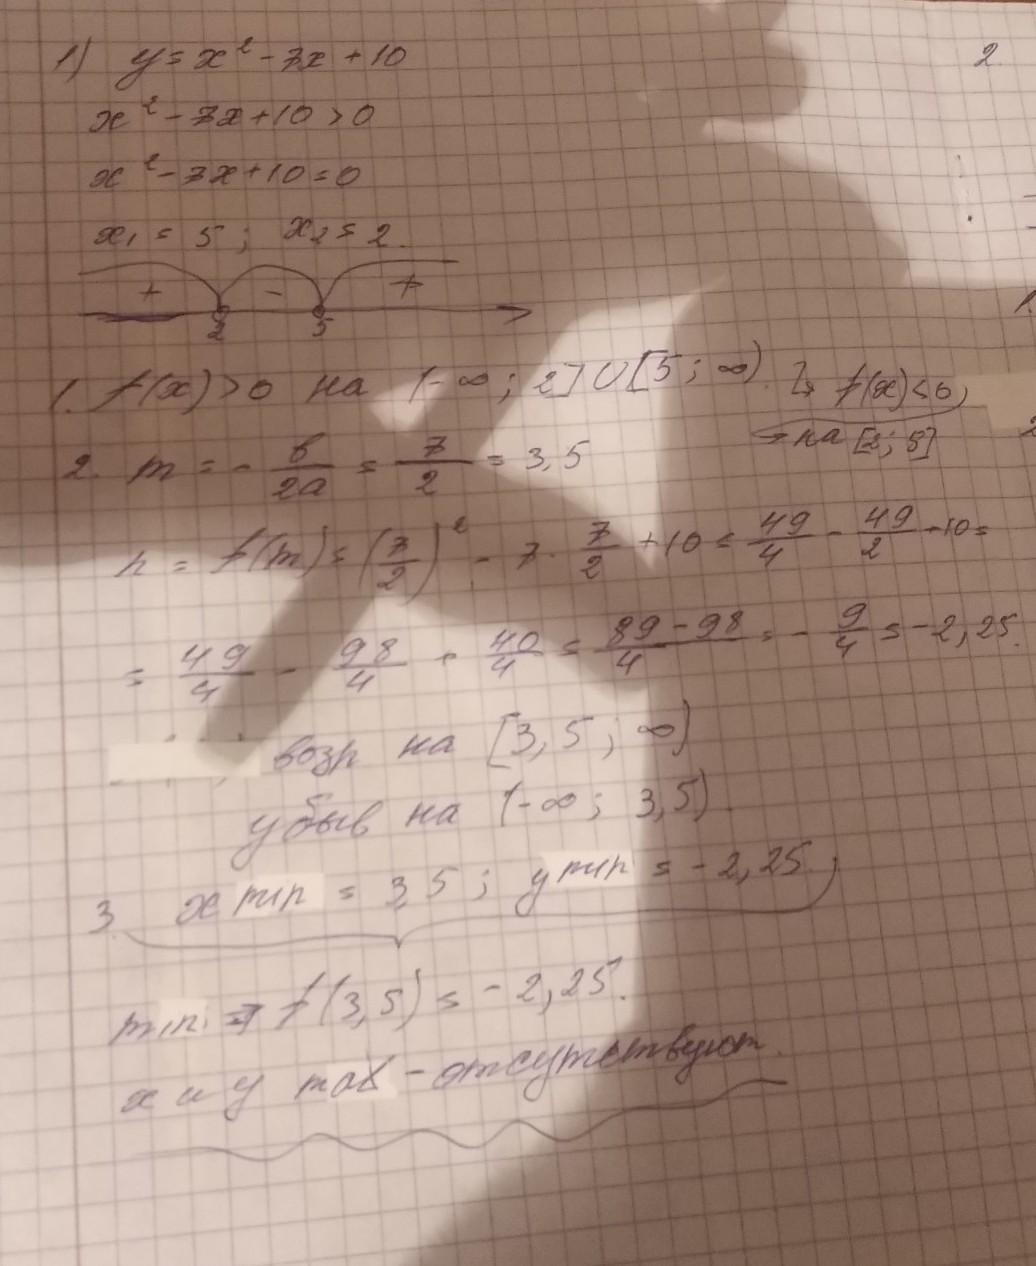 1) y = x² - 7x + 10
2.
x² - 7x + 10 > 0
x² - 7x + 10 = 0
x₁ = 5 ; x₂ = 2.
+ - +
2 5
1. f(x) > 0 на (-∞ ; 2] ∪ [5 ; ∞). f(x) < 0
на [2; 5]
2. m = - b/2a = 7/2 = 3,5
n = f(m) = (7/2)² - 7 · 7/2 + 10 = 49/4 - 49/2 + 10 =
= 49/4 - 98/4 + 40/4 = 89 - 98/4 = - 9/4 = -2,25.
возр на [3,5 ; ∞)
убыв на (-∞ ; 3,5).
3. x min = 3,5 ; y min = -2,25.
min = f(3,5) = -2,25.
x и y max - отсутствуют.